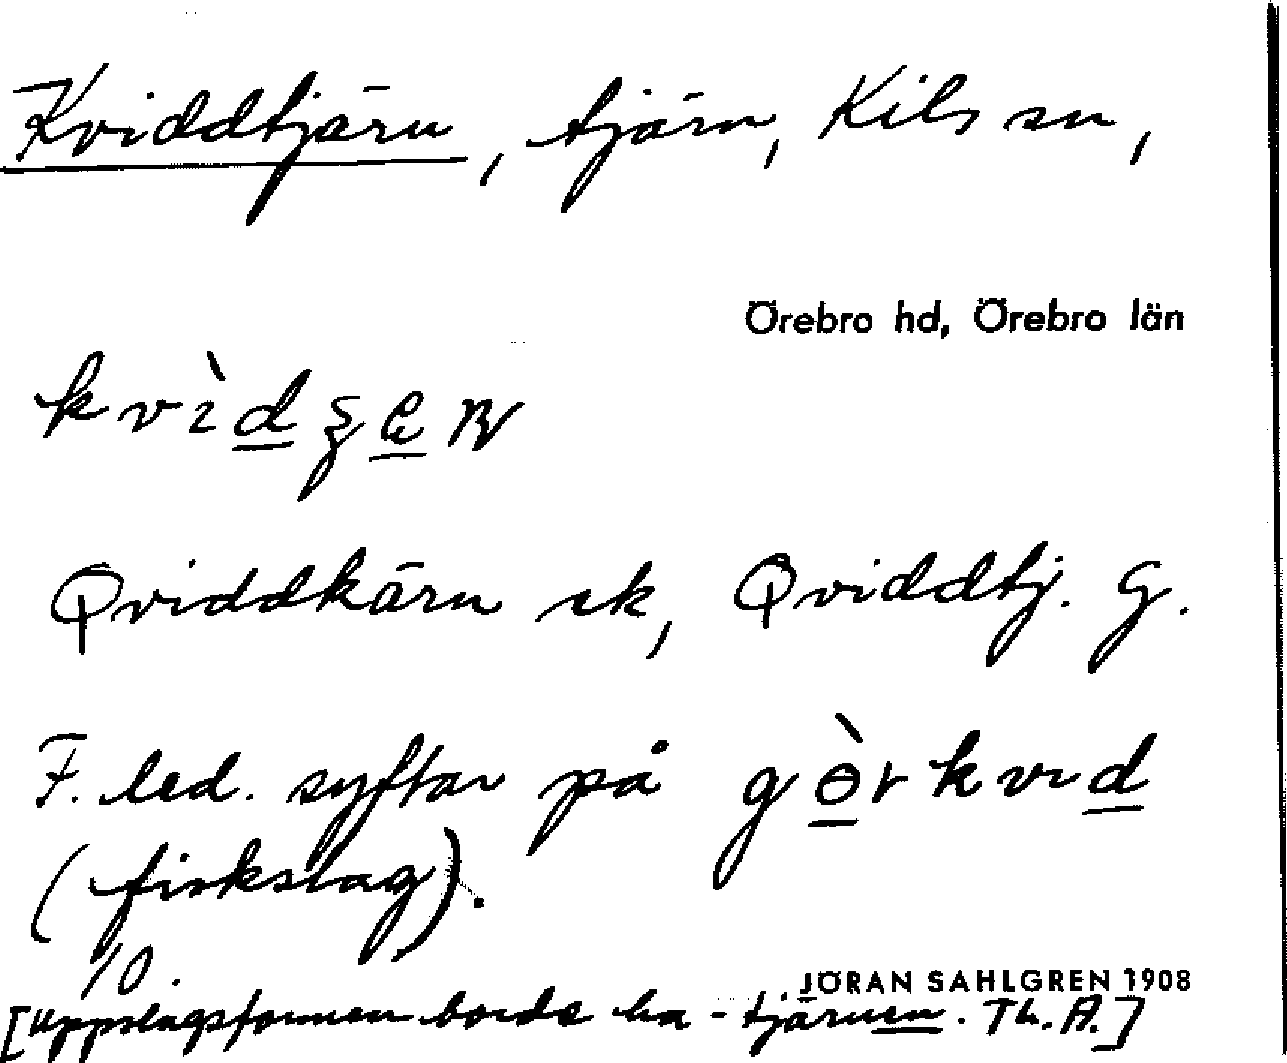 Kviddtjärn, tjärn, Kils sn,
Örebro hd, Örebro län
Qviddkärn ek, Qviddtj. G.
F. led. syftar på
(fiskslag).
10.
JÖRAN SAHLGREN 1908
[Uppslagsformen borde ha -tjärnen. Th. A.]